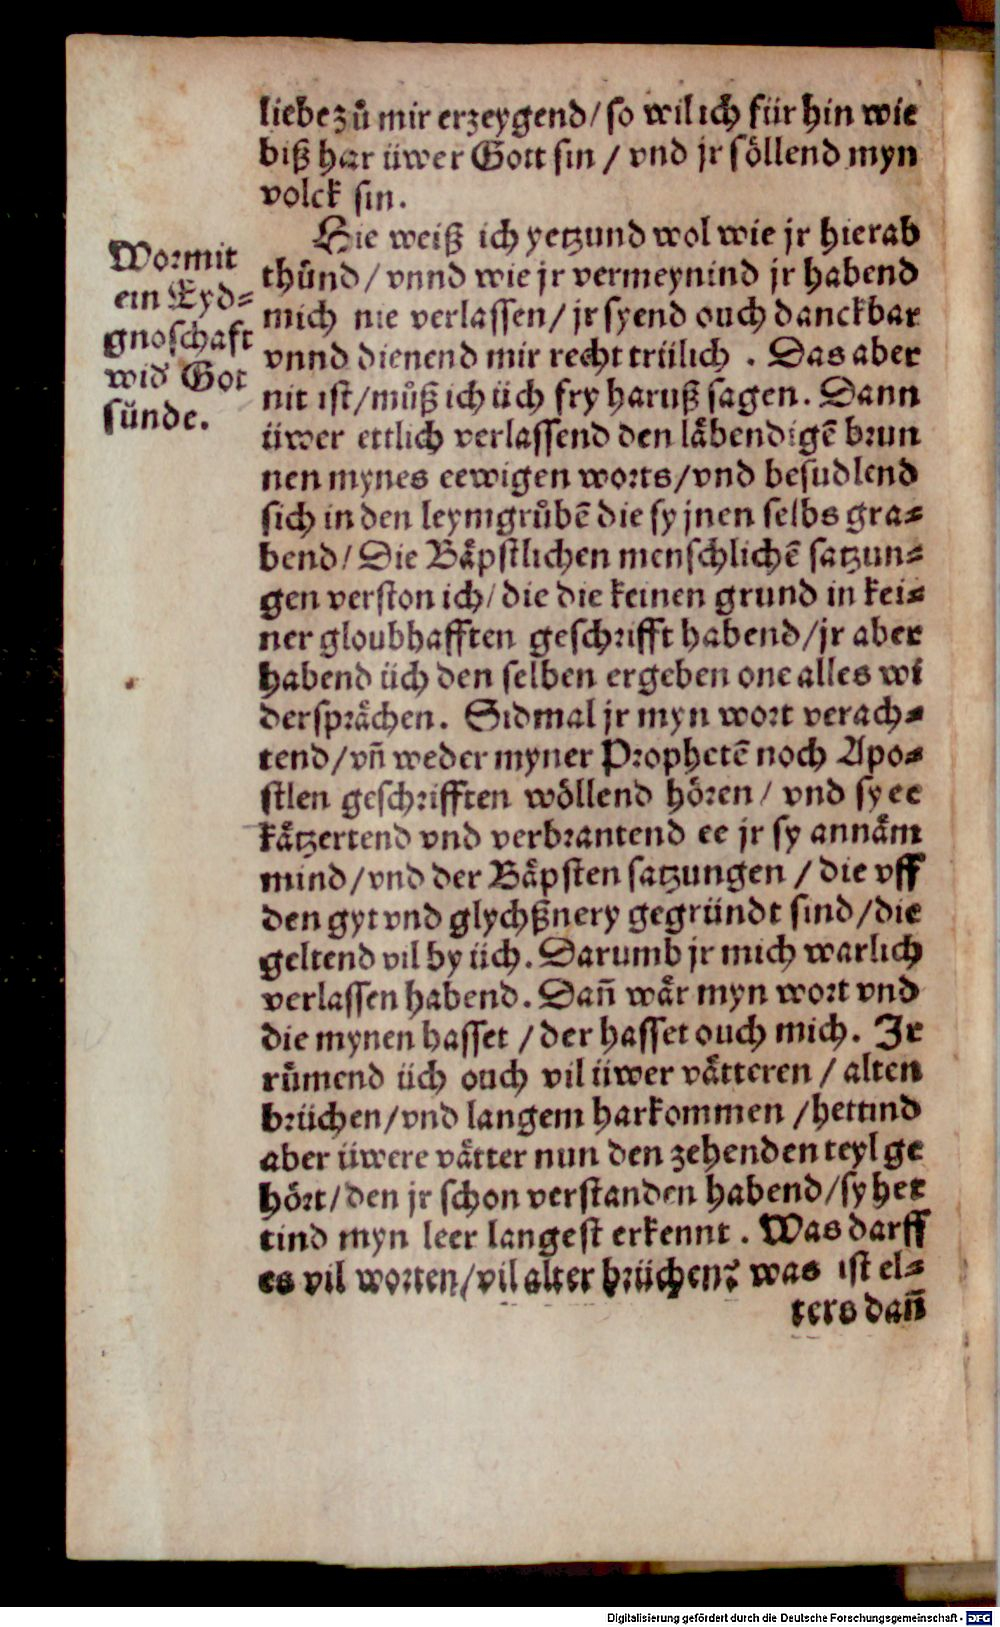 liebe zů mir erzeygend/ so wil ich für hin wie
biß har üwer Gott sin / vnd jr söllend myn
volck sin.
Hie weiß ich yetzund wol wie jr hierab
thůnd/ vnnd wie jr vermeynind jr habend
mich nie verlassen/ jr syend ouch danckbar
vnnd dienend mir recht trülich . Das aber
nit ist/ můß ich üch fry haruß sagen. Dann
üwer ettlich verlassend den läbendigē brun
nen mynes eewigen worts/ vnd besudlend
sich in den leymgrůbē die sy jnen selbs gra⸗
bend/ Die Bäpstlichen menschlichē satzun⸗
gen verston ich/ die die keinen grund in kei⸗
ner gloubhafften geschrifft habend/ jr aber
habend üch den selben ergeben one alles wi
dersprächen. Sidmal jr myn wort verach⸗
tend/ vn̄ weder myner Prophetē noch Apo⸗
stlen geschrifften wöllend hören/ vnd sy ee
kätzertend vnd verbrantend ee jr sy annäm
mind/ vnd der Bäpsten satzungen / die vff
den gyt vnd glychßnery gegründt sind/ die
geltend vil by üch. Darumb jr mich warlich
verlassen habend. Dan̄ wär myn wort vnd
die mynen hasset / der hasset ouch mich. Ir
růmend üch ouch vil üwer vätteren / alten
brüchen/ vnd langem harkommen / hettind
aber üwere vätter nun den zehenden teyl ge
hört/ den jr schon verstanden habend/ sy het
tind myn leer langest erkennt . Was darff
es vil worten/ vil alter brüchen? was ist el⸗
ters dan̄
Wormit
ein Eyd⸗
gnoschaft
wid' Got
sünde.
Digitalisierung gefördert durch die Deutsche Forschungsgemeinschaft - DFG